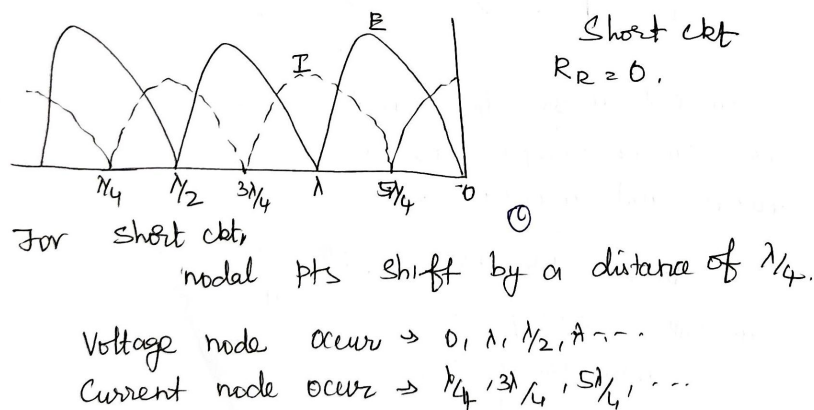 E
Short ckt
I
R_R = 0.
λ/4 λ/2 3λ/4 λ 5λ/4 0
For short ckt,
nodal pts shift by a distance of λ/4.
Voltage node occur → 0, λ, λ/2, λ ....
Current node occur → λ/4, 3λ/4, 5λ/4, ...